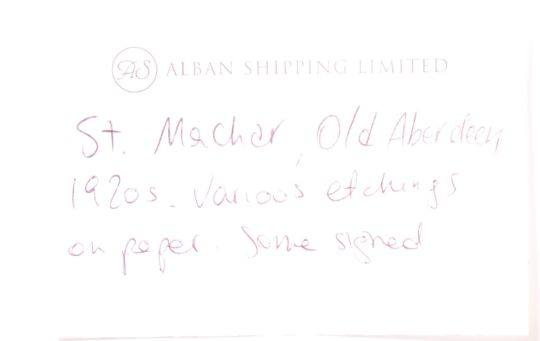 AS ALBAN SHIPPING LIMITED
St. Machar, Old Aberdeen
1920s. Various etchings
on paper. Some signed